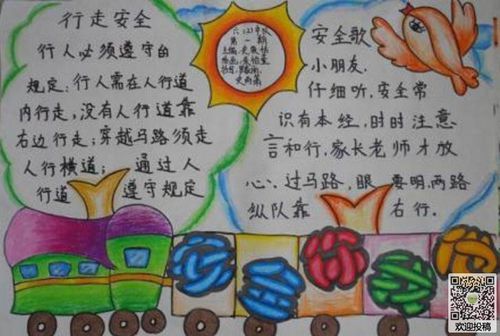 行走安全
行人必须遵守的
规定:行人需在人行道
内行走,没有人行道靠
右边行走;穿越马路须走
人行横道; 通过人
行道 遵守规定
第一期
安全歌
小朋友,
仔细听,安全常
识有本经,时时注意
言和行,家长老师才放
心、过马路,眼要明,两路
纵队靠右行.
安全
欢迎投稿